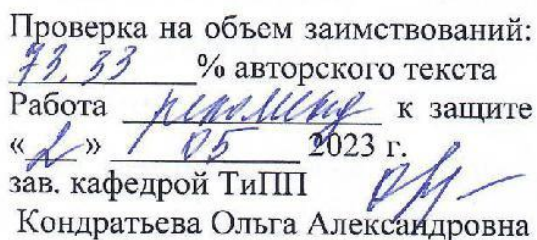 Проверка на объем заимствований:
73,33 % авторского текста
Работа рекоменд к защите
«2» 05 2023 г.
зав. кафедрой ТиПП
Кондратьева Ольга Александровна